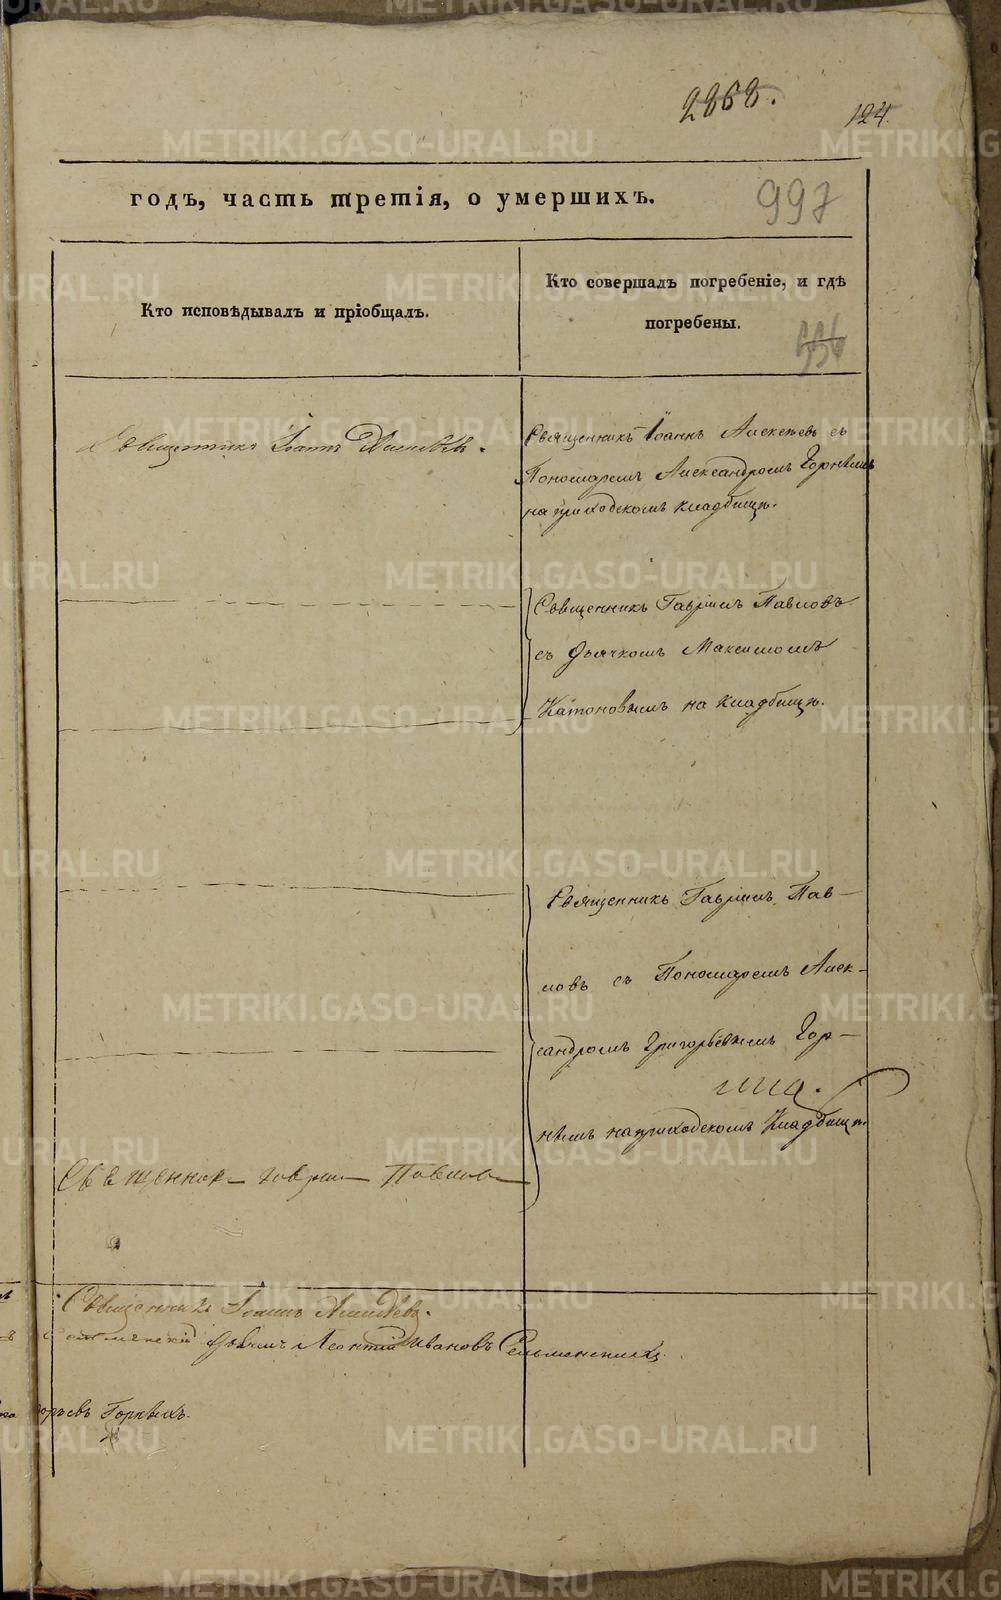 2868.
124
годъ, часть третія, о умершихъ.
997
Кто исповѣдывалъ и пріобщалъ.
Кто совершалъ погребеніе, и гдѣ
погребены.
Священникъ Іоаннъ
Священникъ Іоаннъ Алексѣевъ съ
Пономаремъ Александромъ Горнымъ
на приходскомъ кладбищѣ.
Священникъ Гавріилъ Павловъ
съ Дьячкомъ Максимомъ
Катоновымъ на кладбищѣ.
Священникъ Гавріилъ Пав-
ловъ съ Пономаремъ Алек-
сандромъ Григорьевымъ Гор-
нымъ на приходскомъ Кладбищѣ.
Священник Гаври Павлов
Священникъ Іоаннъ
Леонтій Ивановъ
Горныхъ.
METRIKI.GASO-URAL.RU